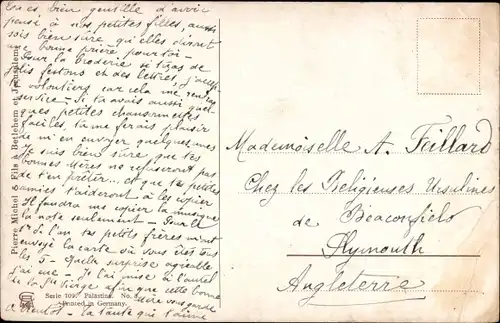 Tu es bien gentille d'avoir
pensé à nos petites filles, aussi
sois bien sûre qu'elles diront
une bonne prière pour toi -
Pour la broderie si tu as de
jolis festons et des lettres, j'accepte
volontiers car cela me rendrait
service - Si tu avais aussi quel-
ques petites chansonnettes
faciles, tu me ferais plaisir
de m'en envoyer quelques unes
Je suis bien sûre que tes
bonnes Mères ne refuseront pas
de t'en prêter... et que tes petites
amies t'aideront à les copier
Il faudra me copier la musique
la note seulement - Pour le
1er de l'an tes petits frères m'ont
envoyé la carte où vous êtes tous
les 5 - Quelle surprise agréable
j'ai eue - Je l'ai mise à l'autel
de la Ste Vierge afin que cette bonne
Mère vous garde
à bientôt - ta tante qui t'aime
Pierre Michel & Fils à Betlehem et Jérusalem
Serie 709. Palastina. No.
Printed in Germany.
Mademoiselle A. Feillard
Chez les Religieuses Ursulines
de Beaconfield
Plymouth
Angleterre